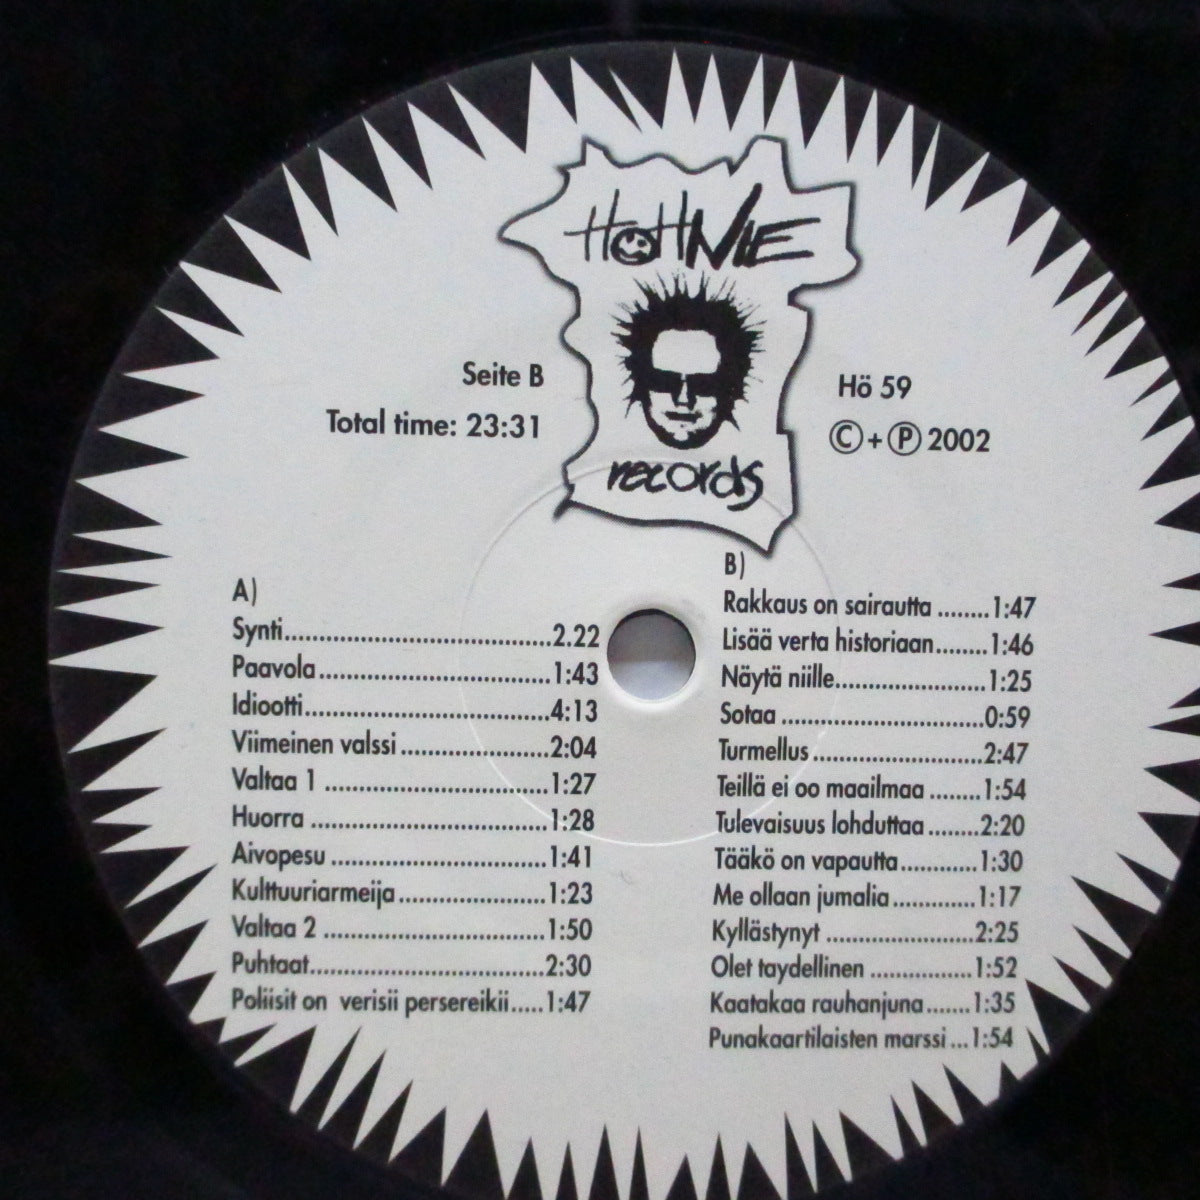 HöHNIE
records
Seite B
Total time: 23:31
Hö 59
©+℗ 2002
A)
Synti..................................2.22
Paavola..............................1:43
Idiootti................................4:13
Viimeinen valssi...................2:04
Valtaa 1 .............................1:27
Huorra ...............................1:28
Aivopesu ............................1:41
Kulttuuriarmeija...................1:23
Valtaa 2 .............................1:50
Puhtaat...............................2:30
Poliisit on verisii persereikii.....1:47
B)
Rakkaus on sairautta ........1:47
Lisää verta historiaan........1:46
Näytä niille.......................1:25
Sotaa ..............................0:59
Turmellus .........................2:47
Teillä ei oo maailmaa ........1:54
Tulevaisuus lohduttaa ........2:20
Tääkö on vapautta............1:30
Me ollaan jumalia .............1:17
Kyllästynyt .......................2:25
Olet taydellinen ................1:52
Kaatakaa rauhanjuna.......1:35
Punakaartilaisten marssi ...1:54